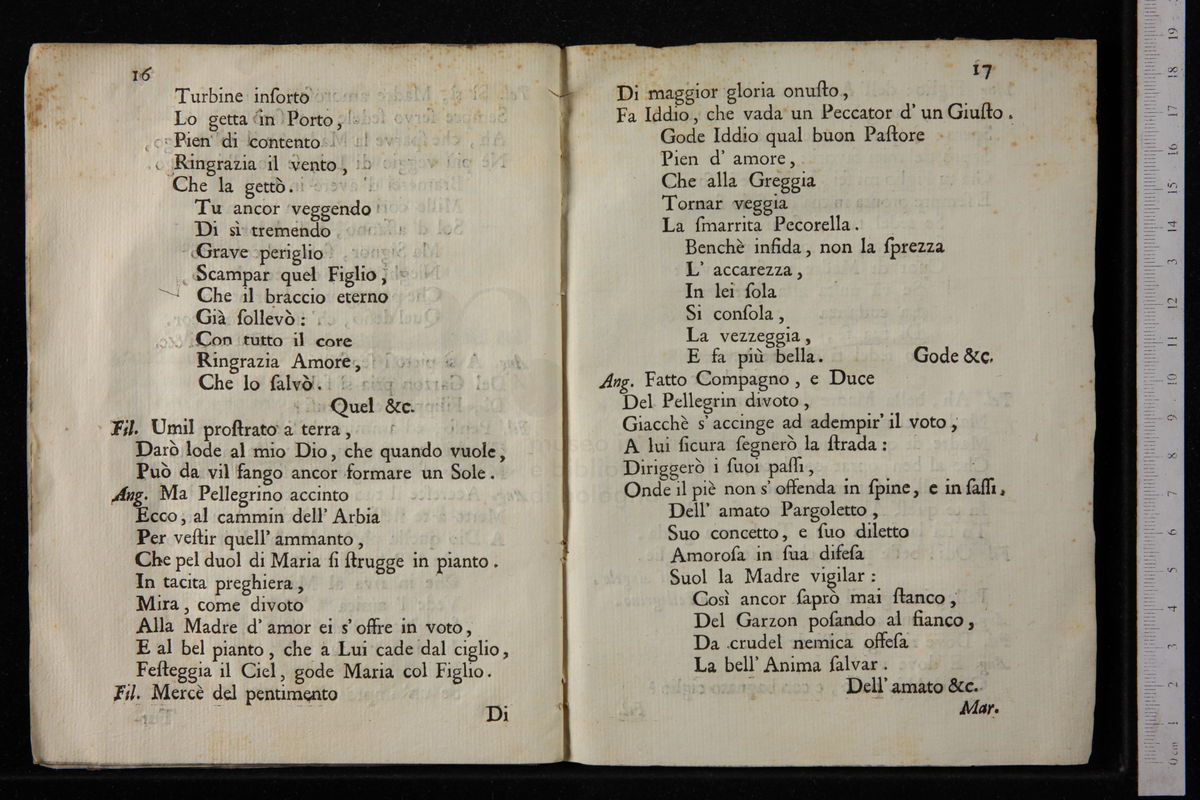 16
Turbine inſorto
Lo getta in Porto,
Pien di contento
Ringrazia il vento,
Che la gettò.
Tu ancor veggendo
Di sì tremendo
Grave periglio
Scampar quel Figlio,
Che il braccio eterno
Già ſollevò:
Con tutto il core
Ringrazia Amore,
Che lo ſalvò.
Quel &c.
Fil. Umil proſtrato a terra,
Darò lode al mio Dio, che quando vuole,
Può da vil fango ancor formare un Sole.
Ang. Ma Pellegrino accinto
Ecco, al cammin dell' Arbia
Per veſtir quell' ammanto,
Che pel duol di Maria ſi ſtrugge in pianto.
In tacita preghiera,
Mira, come divoto
Alla Madre d' amor ei s' offre in voto,
E al bel pianto, che a Lui cade dal ciglio,
Feſteggia il Ciel, gode Maria col Figlio.
Fil. Mercè del pentimento
Di
17
Di maggior gloria onuſto,
Fa Iddio, che vada un Peccator d' un Giuſto.
Gode Iddio qual buon Paſtore
Pien d' amore,
Che alla Greggia
Tornar veggia
La ſmarrita Pecorella.
Benchè infida, non la ſprezza
L' accarezza,
In lei ſola
Si conſola,
La vezzeggia,
E fa più bella. Gode &c.
Ang. Fatto Compagno, e Duce
Del Pellegrin divoto,
Giacchè s' accinge ad adempir' il voto,
A lui ſicura ſegnerò la ſtrada:
Diriggerò i ſuoi paſſi,
Onde il piè non s' offenda in ſpine, e in ſaſſi.
Dell' amato Pargoletto,
Suo concetto, e ſuo diletto
Amoroſa in ſua difeſa
Suol la Madre vigilar:
Così ancor ſaprò mai ſtanco,
Del Garzon poſando al fianco,
Da crudel nemica offeſa
La bell' Anima ſalvar.
Dell' amato &c.
Mar.